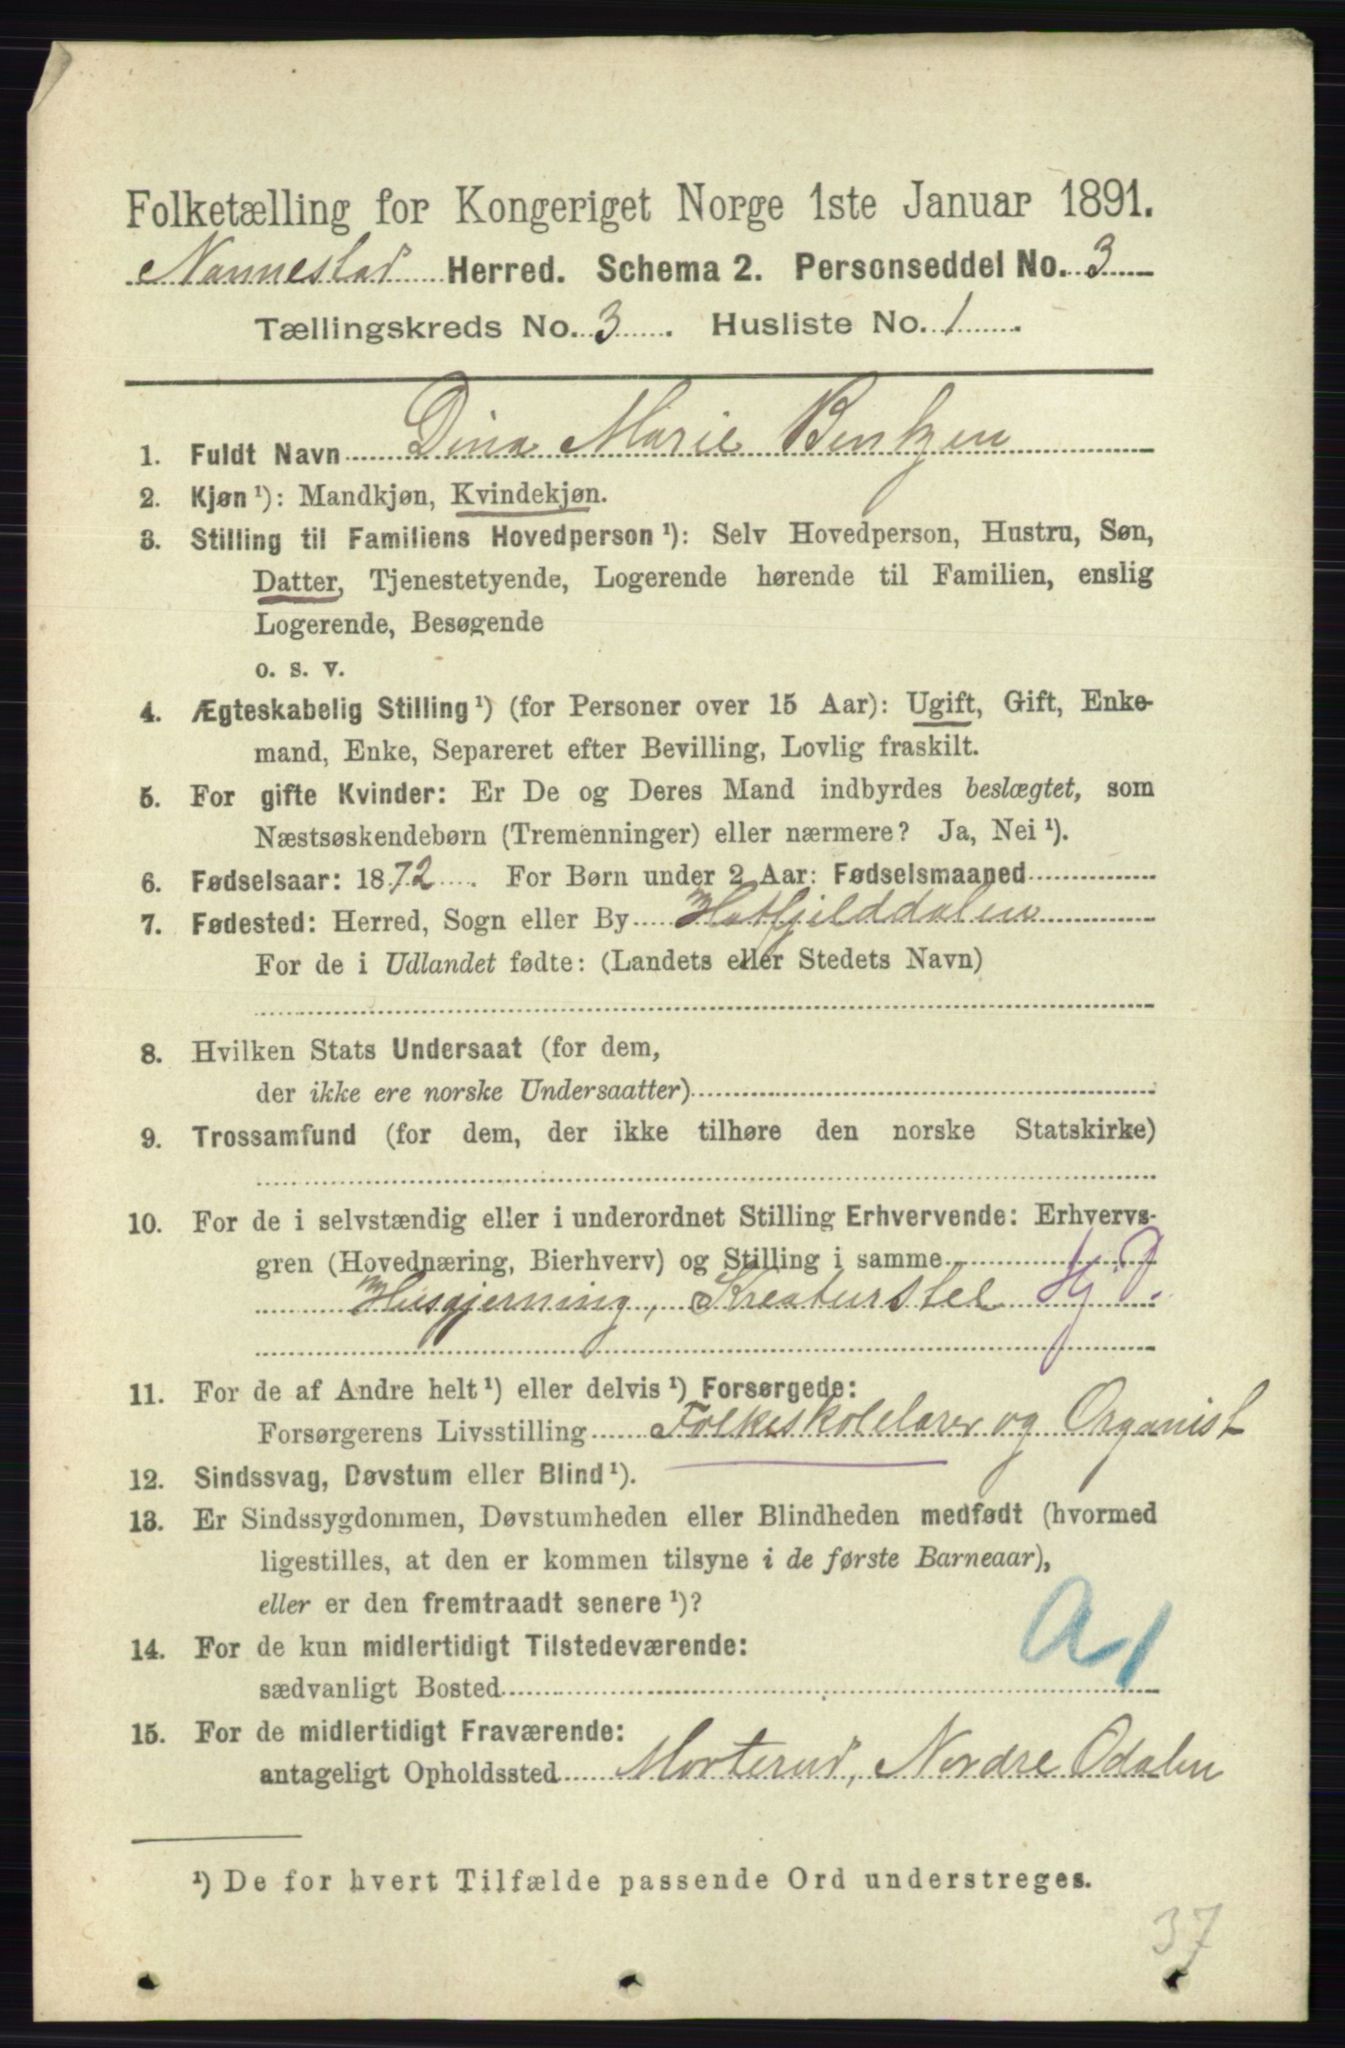 Folketælling for Kongeriget Norge 1ste Januar 1891.
Nannestad Herred. Schema 2. Personseddel No. 3
Tællingskreds No. 3. Husliste No. 1.
1. Fuldt Navn Dina Marie Bentzen
2. Kjøn¹): Mandkjøn, Kvindekjøn.
3. Stilling til Familiens Hovedperson¹): Selv Hovedperson, Hustru, Søn,
Datter, Tjenestetyende, Logerende hørende til Familien, enslig
Logerende, Besøgende
o. s. v.
4. Ægteskabelig Stilling¹) (for Personer over 15 Aar): Ugift, Gift, Enke-
mand, Enke, Separeret efter Bevilling, Lovlig fraskilt.
5. For gifte Kvinder: Er De og Deres Mand indbyrdes beslægtet, som
Næstsøskendebørn (Tremenninger) eller nærmere? Ja, Nei¹).
6. Fødselsaar: 1872. For Børn under 2 Aar: Fødselsmaaned
7. Fødested: Herred, Sogn eller By Hatfjelddalen
For de i Udlandet fødte: (Landets eller Stedets Navn)
8. Hvilken Stats Undersaat (for dem,
der ikke ere norske Undersaatter)
9. Trossamfund (for dem, der ikke tilhøre den norske Statskirke)
10. For de i selvstændig eller i underordnet Stilling Erhvervende: Erhvervs-
gren (Hovednæring, Bierhverv) og Stilling i samme
Husgjerning, Kreaturstel Hj. D.
11. For de af Andre helt¹) eller delvis¹) Forsørgede:
Forsørgerens Livsstilling Folkeskolelærer og Organist
12. Sindssvag, Døvstum eller Blind¹).
13. Er Sindssygdommen, Døvstumheden eller Blindheden medfødt (hvormed
ligestilles, at den er kommen tilsyne i de første Barneaar),
eller er den fremtraadt senere¹)?
14. For de kun midlertidigt Tilstedeværende:
sædvanligt Bosted
A1
15. For de midlertidigt Fraværende:
antageligt Opholdssted Morterud, Nordre Odalen
¹) De for hvert Tilfælde passende Ord understreges.
37